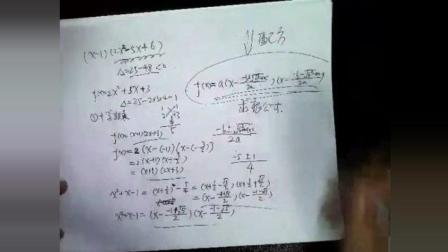 (x-1)(2x²-5x+6)
Δ=25-48<0
f(x)=2x²+5x+3
Δ=25-2×3×4=1
①十字相乘
f(x)=(x+1)(2x+3)
f(x)=2(x-(-1))(x-(-3/2))
=2(x+1)(x+3/2)
=(x+1)(2x+3)
x²+x-1=(x+1/2)²-5/4=(x+1/2-√5/2)(x+1/2+√5/2)
=(x-(-1+√5)/2)(x-(-1-√5)/2)
x²+x-1=(x-(-1+√5)/2)(x-(-1-√5)/2)
配方
求根公式
2a
-5±1
4